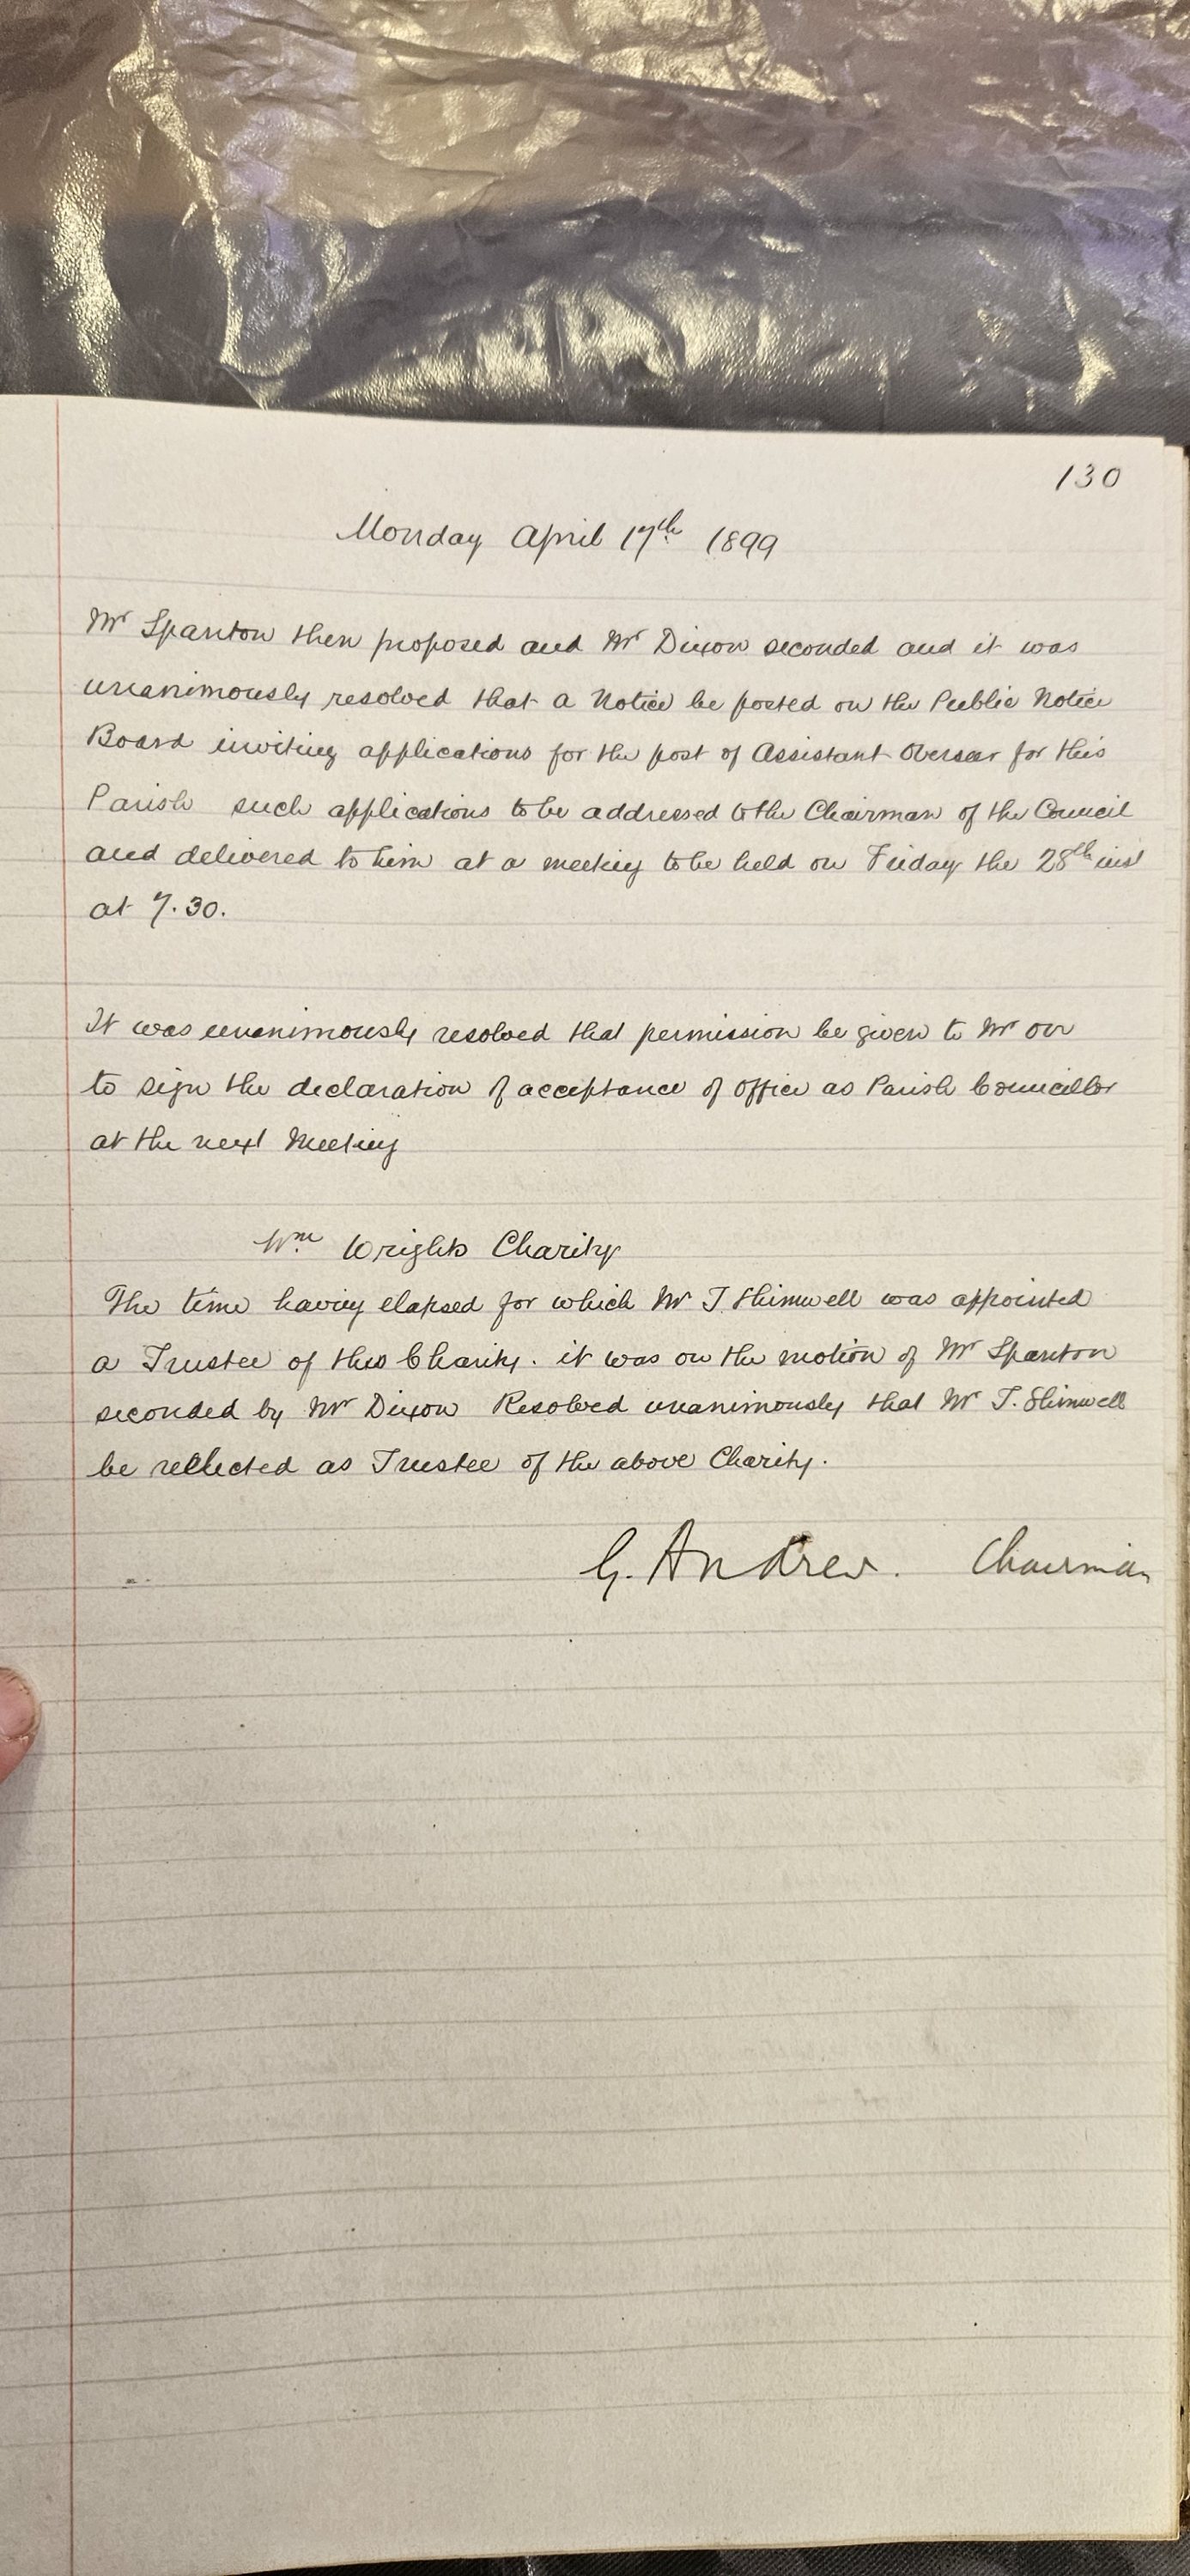 130
Monday April 17th 1899
Mr Spanton then proposed and Mr Dixon seconded and it was
unanimously resolved that a Notice be posted on the Public Notice
Board inviting applications for the post of Assistant Overseer for this
Parish such applications to be addressed to the Chairman of the Council
and delivered to him at a meeting to be held on Friday the 28th inst
at 7.30.
It was unanimously resolved that permission be given to Mr Orr
to sign the declaration of acceptance of office as Parish Councillor
at the next Meeting
Wm Wrights Charity
The time having elapsed for which Mr T Shimwell was appointed
a Trustee of this Charity. it was on the motion of Mr Spanton
seconded by Mr Dixon Resolved unanimously that Mr T. Shimwell
be reelected as Trustee of the above Charity.
G. Andrew. Chairman